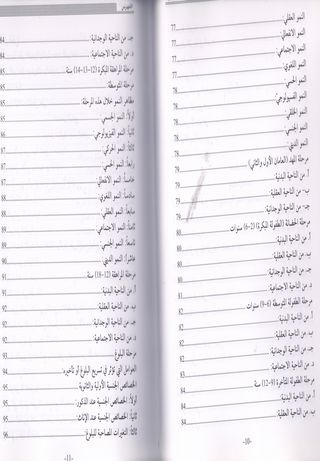 النمو العقلي: 77
النمو الانفعالي:
النمو الاجتماعي: 77
النمو اللغوي: 77
النمو الحسي: 77
النمو الفسيولوجي: 78
النمو الخلقي: 78
النمو الجنسي: 78
النمو الديني: 78
مرحلة المهد (العامان الأول والثاني) 78
أ. من الناحية البدنية: 79
ب- من الناحية العقلية: 79
جـ- من الناحية الوجدانية: 79
مرحلة الحضانة (الطفولة المبكرة) (2-6) سنوات 79
أ. من الناحية البدنية: 80
ب- من الناحية العقلية: 80
جـ- من الناحية الوجدانية: 80
د. من الناحية الاجتماعية:
مرحلة الطفولة المتوسطة (6-9) سنوات 82
أ. من الناحية البدنية: 82
ب. من الناحية العقلية: 82
جـ- من الناحية الوجدانية: 82
د. من الناحية الاجتماعية: 82
مرحلة الطفولة المتأخرة (9-12) سنة 84
أ. من الناحية البدنية: 84
ب. من الناحية العقلية: 84
-10-
الفهرس
جـ- من الناحية الوجدانية: 84
د. من الناحية الاجتماعية: 84
مرحلة المراهقة المبكرة (12-13-14) سنة 85
مرحلة المتوسطة 85
مظاهر النمو خلال هذه المرحلة: 85
أولاً: النمو الجسمي: 85
ثانياً: النمو الفيزيولوجي: 86
ثالثاً: النمو الحركي: 87
رابعاً: النمو الحسي: 87
خامساً: النمو الانفعالي: 87
سادساً: النمو اللغوي: 88
سابعاً: النمو العقلي: 88
ثامناً: النمو الاجتماعي: 89
تاسعاً: النمو الجنسي: 89
عاشراً: النمو الديني: 90
مرحلة المراهقة (12-18) سنة 91
أ. من الناحية البدنية: 91
ب. من الناحية العقلية: 92
جـ- من الناحية الوجدانية: 92
د. من الناحية الاجتماعية: 92
مرحلة البلوغ 93
العوامل التي تؤثر في تسريع البلوغ أو تأخيره: 94
الخصائص الجنسية الأولية والثانوية 95
أولاً: الخصائص الجنسية عند الذكور: 95
ثانياً: الخصائص الجنسية عند الإناث: 95
ثالثاً: التغيرات المصاحبة للبلوغ: 96
-11-